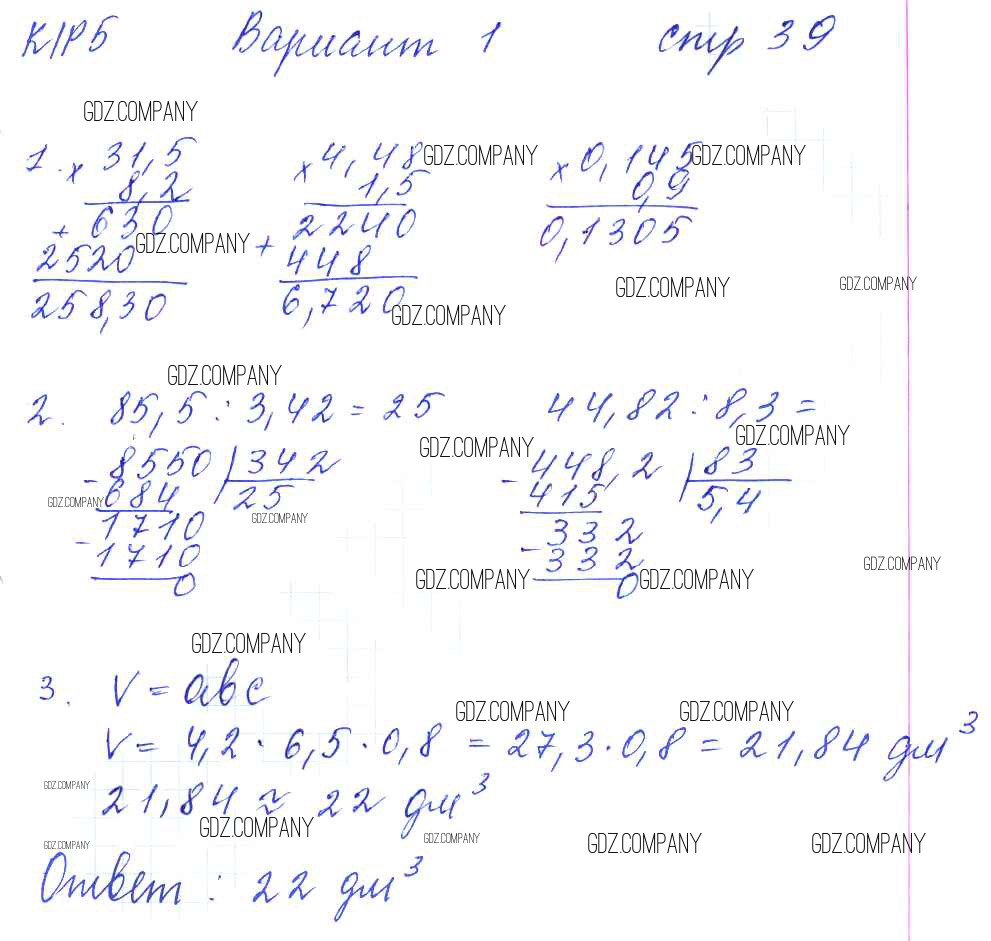 К/Р5 Вариант 1 стр 39
GDZ.COMPANY
1. × 31,5 × 4,48 GDZ.COMPANY × 0,145 GDZ.COMPANY
8,2 1,5 0,9
+ 630 2240 0,1305
2520 GDZ.COMPANY + 448
GDZ.COMPANY GDZ.COMPANY
25 8,30 6,720 GDZ.COMPANY
GDZ.COMPANY
2. 85,5 : 3,42 = 25 44,82 : 8,3 =
GDZ.COMPANY GDZ.COMPANY
- 8550 342 - 448,2 83
GDZ.COMPANY 684 25 415 5,4
1710 GDZ.COMPANY 332
- 1710 - 332
0 GDZ.COMPANY 0 GDZ.COMPANY GDZ.COMPANY
GDZ.COMPANY
3. V = abc
GDZ.COMPANY GDZ.COMPANY
V = 4,2 · 6,5 · 0,8 = 27,3 · 0,8 = 21,84 дм³
GDZ.COMPANY
21,84 ≈ 22 дм³
GDZ.COMPANY GDZ.COMPANY GDZ.COMPANY GDZ.COMPANY
GDZ.COMPANY
Ответ : 22 дм³